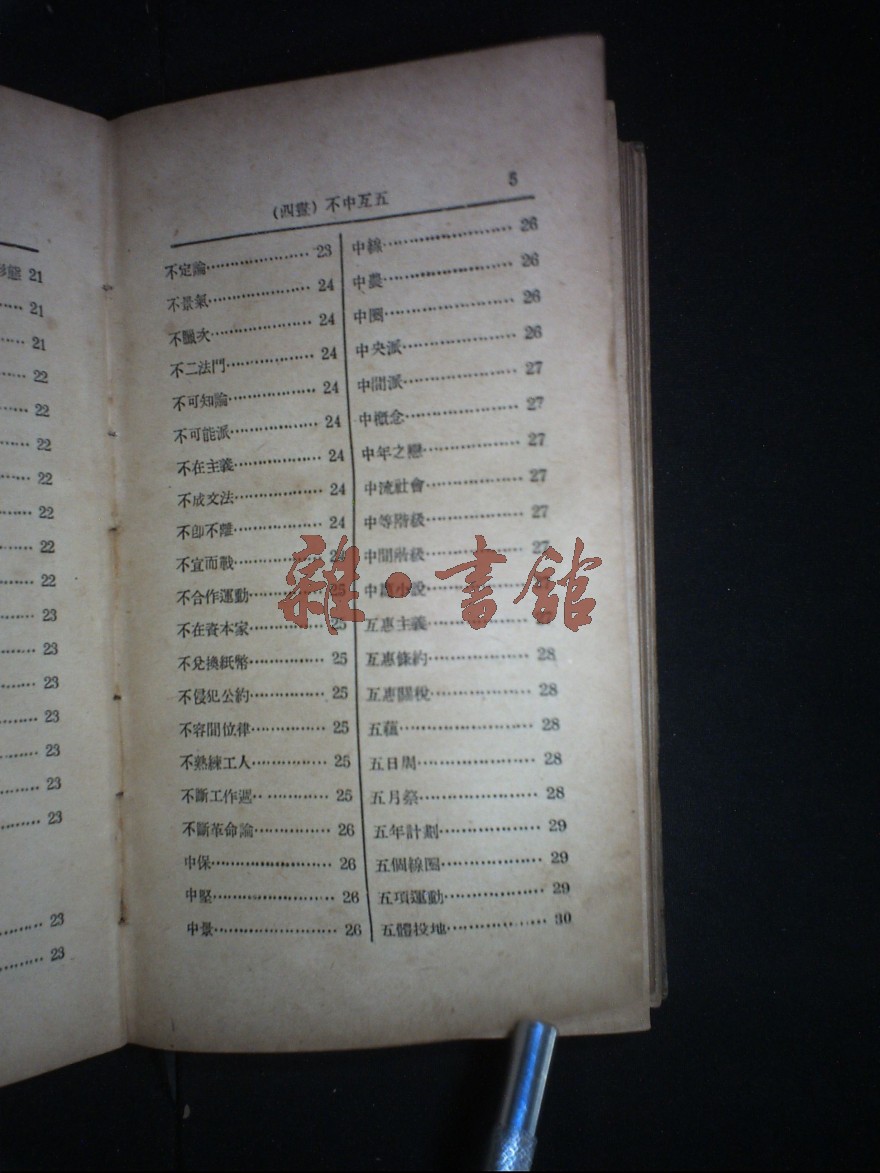 形態 21
21
21
22
22
22
22
22
22
22
23
23
23
23
23
23
23
23
23
5
(四畫) 不中互五
不定論 23
不景氣 24
不飄次 24
不二法門 24
不可知論 24
不可能派 24
不在主義 24
不成文法 24
不卽不離 24
不宣而戰 24
不合作運動 25
不在資本家 25
不兌換紙幣 25
不侵犯公約 25
不容間位律 25
不熟練工人 25
不斷工作週 25
不斷革命論 26
中保 26
中堅 26
中景 26
中線 26
中農 26
中圈 26
中央派 26
中間派 27
中概念 27
中年之戀 27
中流社會 27
中等階級 27
中間階級 27
中篇小說
互惠主義
互惠條約 28
互惠關稅 28
五蘊 28
五日周 28
五月祭 28
五年計劃 29
五個線圈 29
五項運動 29
五體投地 30
雜·書館